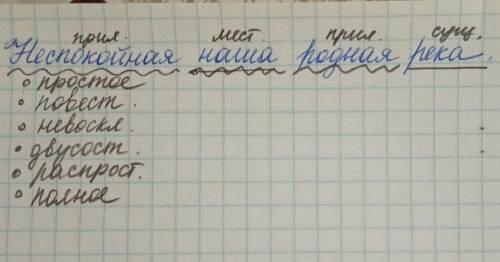 прил. мест. прил. сущ.
Неспокойная наша родная река.
• простое
• повест.
• невоскл.
• двусост.
• распрост.
• полное